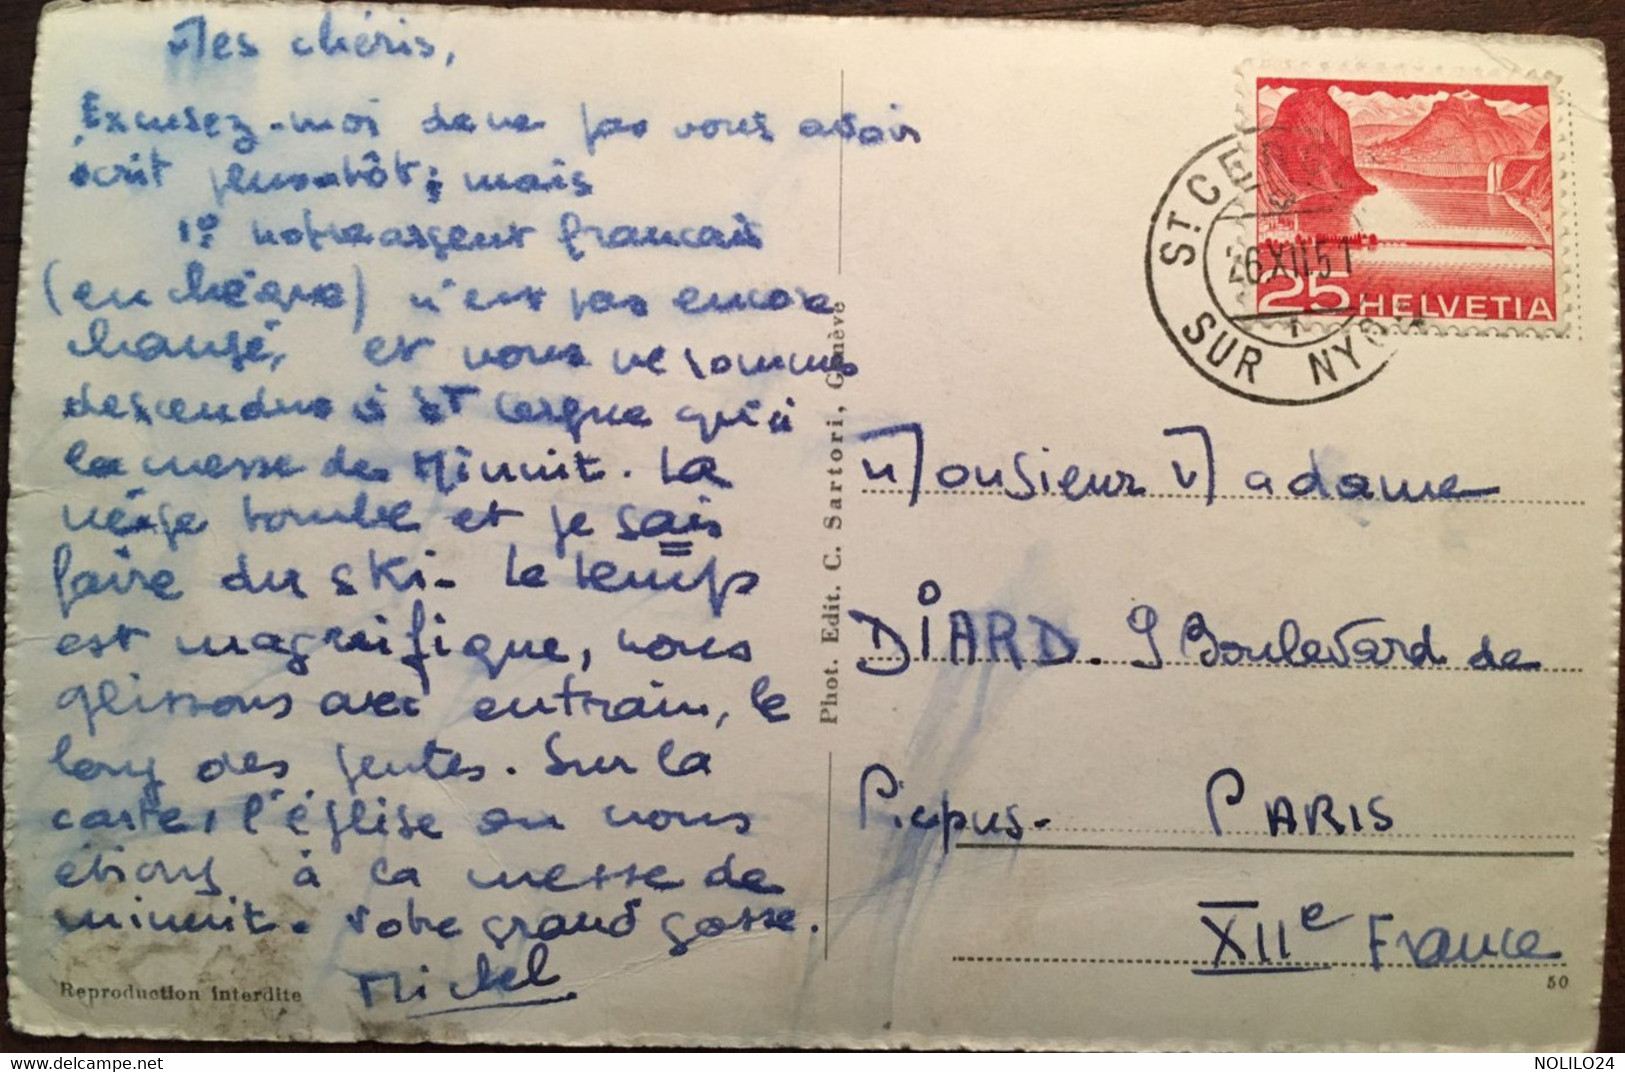 Mes chéris,
Excusez-moi de ne pas vous avoir
écrit plus tôt; mais
1º notre argent francais
(en chèque) n'est pas encore
changé, et nous ne sommes
descendus à St Cergue qu'à
la messe de Minuit. La
neige tombe et je sais
faire du ski - Le temps
est magnifique, nous
glissons avec entrain, le
long des pentes. Sur la
carte, l'église où nous
étions à la messe de
minuit. Votre grand gosse.
Michel
Reproduction interdite
Phot. Edit. C. Sartori, Genève
ST CERGUE
26 XII 51
SUR NYON
25 HELVETIA
Monsieur Madame
DIARD. 9 Boulevard de
Picpus - PARIS
XIIe France
50
NOLILO24